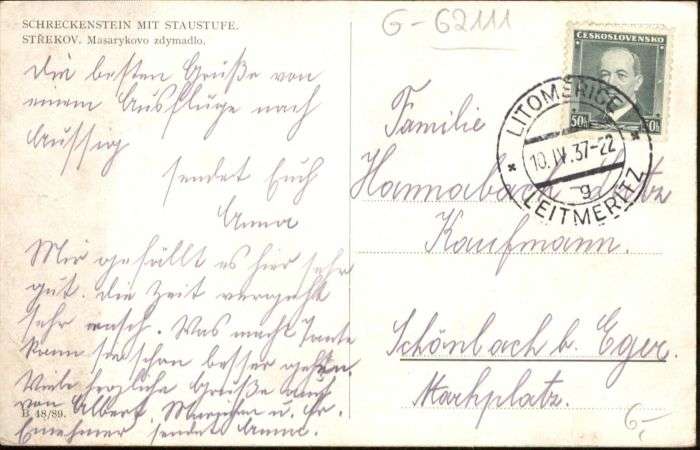 SCHRECKENSTEIN MIT STAUSTUFE.
STŘEKOV. Masarykovo zdymadlo.
G-62111
ČESKOSLOVENSKO
50h 50h
LITOMĚŘICE
10.IV.37-22
9g
LEITMERITZ
Die besten Grüße von
einem Ausfluge nach
Aussig
sendet Euch
Anna
Mir gefällt es hier sehr
gut. Die Zeit vergeht
sehr rasch. Was macht Tante
kann sie schon besser gehen.
Viele herzliche Grüße auch
von Albert, u.
sendet Anna.
B 48/89.
Familie
Hannabach
Kaufmann.
Schönbach b. Eger.
Marktplatz.
6,-